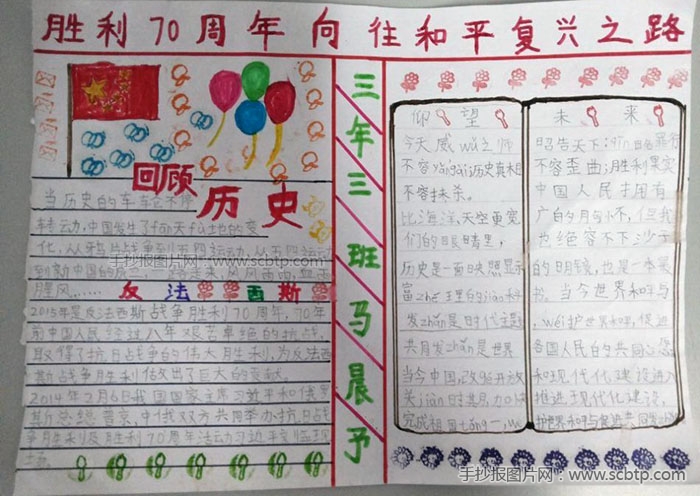 胜利70周年 向往和平复兴之路
回顾
历史
当历史的车
转动,中国发生了fān天fù地的变
化,从鸦片战争到五四运动,从五四运动
到新中国的成立,一路走来,风风雨雨,血雨
腥风……
反法西斯
2015年是反法西斯战争胜利70周年,70年
前中国人民经过八年艰苦卓绝的抗战,
取得了抗日战争的伟大胜利,为反法西
斯战争胜利做出了巨大的贡献。
2014年2月6日我国国家主席习近平和俄罗
斯总统普京,中俄双方共同举办抗日战
争胜利及胜利70周年活动习近平
场。
三年三班马晨予
仰望
今天威wǔ之师
不容 历史真相
不容抹杀。
比海洋,天空更宽
们的眼睛里,
历史是一面映照
富zhé理的
发zhǎn是时代主题
共同发zhǎn是世界
当今中国,改革开放
关jiàn时
完成祖国tǒng一,
未来
昭告天下:
不容歪曲;胜利果实
中国人民拥有
广的
也绝容不下沙子
的明镜,也是一本
书。当今世界和平与
,wéi护世界和平,促进
各国人民的共同心愿
和现代化建设进入
推进现代化建设,
护世界和平与促进共同发zhǎn
手抄报图片网·www.scbtp.com
手抄报图片网-www.scbtp.com